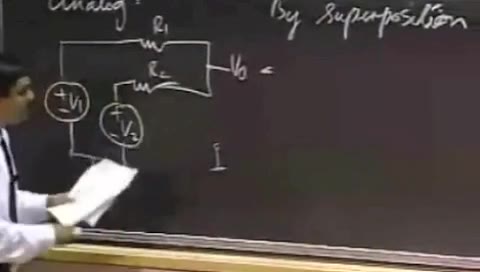 analog:
By Superposition
R1
R2
V0
+
-
V1
+
-
V2